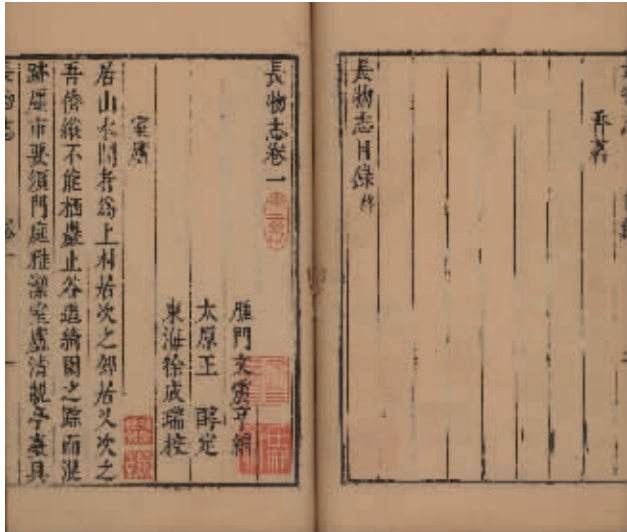 香茗
長物志目錄終
長物志卷一
雁門文震亨編
太原王 醇定
東海徐成瑞校
室廬
居山水間者為上村居次之郊居又次之
吾儕縱不能栖巖止谷追綺園之踪而混
跡廛市要須門庭雅潔室廬清靚亭臺具